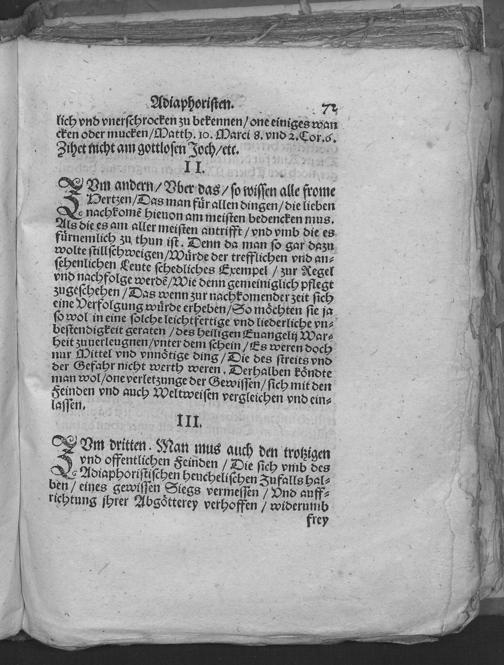 Adiaphoristen. 72
lich vnd vnerschrocken zu bekennen/one einiges wan
cken oder mucken/Matth. 10. Marci 8. vnd 2. Cor. 6.
Zihet nicht am gottlosen Joch/etc.
II.
ZVm andern/Vber das/so wissen alle frome
Hertzen/Das man für allen dingen/die lieben
nachkomē hieuon am meisten bedencken mus.
Als die es am aller meisten antrifft/vnd vmb die es
fürnemlich zu thun ist. Denn da man so gar dazu
wolte stillschweigen/Würde der trefflichen vnd an-
sehenlichen Leute schedliches Exempel/zur Regel
vnd nachfolge werdē/Wie denn gemeiniglich pflegt
zugeschehen/Das wenn zur nachkomender zeit sich
eine Verfolgung würde erheben/So möchten sie ja
so wol in eine solche leichtfertige vnd liederliche vn-
bestendigkeit geraten/des heiligen Euangelij War-
heit zuuerleugnen/vnter dem schein/Es weren doch
nur Mittel vnd vnnötige ding/Die des streits vnd
der Gefahr nicht werth weren. Derhalben köndte
man wol/one verletzunge der Gewissen/sich mit den
Feinden vnd auch Weltweisen vergleichen vnd ein-
lassen.
III.
ZVm dritten. Man mus auch den trotzigen
vnd offentlichen Feinden/Die sich vmb des
Adiaphoristischen heuchelischen Zufalls hal-
ben/eines gewissen Siegs vermessen/Vnd auff-
richtung jhrer Abgötterey verhoffen/widerumb
frey